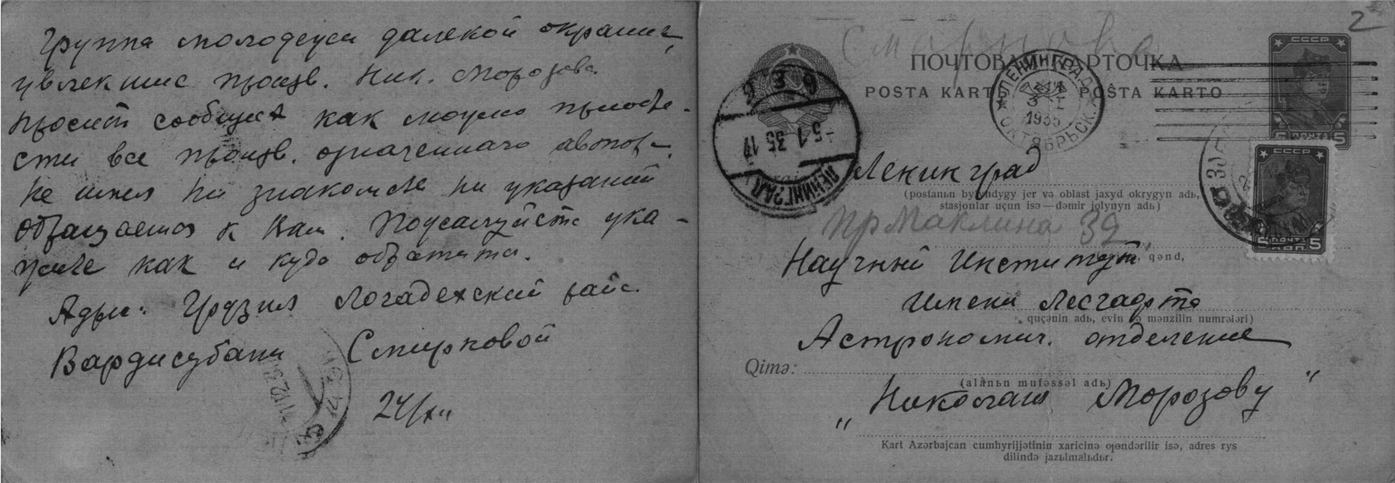 Группа молодежи далекой окраины,
увлекшись произв. Ник. Морозова
просит сообщить как можно приобре-
сти все произв. означенного автора.
Не имея ни знакомств ни указаний
обращаемся к Вам. Пожалуйста ука-
жите как и куда обратится.
Адрес: Грузия Логадехский район
Вардисубани Смирновой
24/XII
2
Смирнова
ПОЧТОВАЯ КАРТОЧКА
POSTA KARTЬ POŜTA KARTO
СССР
ЛЕНИНГРАД
1935
ОКТЯБРЬСК.
6 3 6
-5 1 35 17
ЛЕНИНГРАД
5 5
ПОЧТА
5 КОП. 5
Ленинград
(postanьn bylyndygy jer və oblast jaxyd okrygyn adь,
stasjonlar ucyn isə — dəmir jolynyn adь)
пр Маклина 32
qənd,
Научный Институт
имени Лесгафта
quçənin adь, evin və mənzilin numrələri)
Астрономич. отделение
Qimə:
(alanьn mufəssəl adь)
„Николаю Морозову"
Kart Azərbajcan cumhyrijjətinin xaricinə gəndərilir isə, adres rys
dilində jazьlmalьdьr.